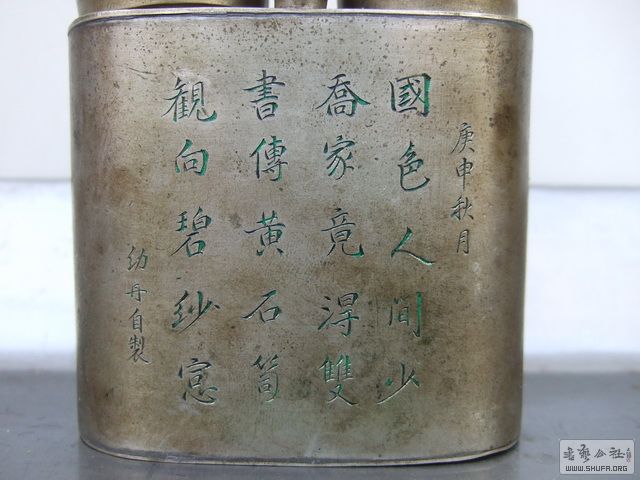 庚申秋月
國色人間少
喬家竟淂雙
書傳黃石笥
観向碧紗窓
幼丹自製
書藝公社
WWW.SHUFA.ORG